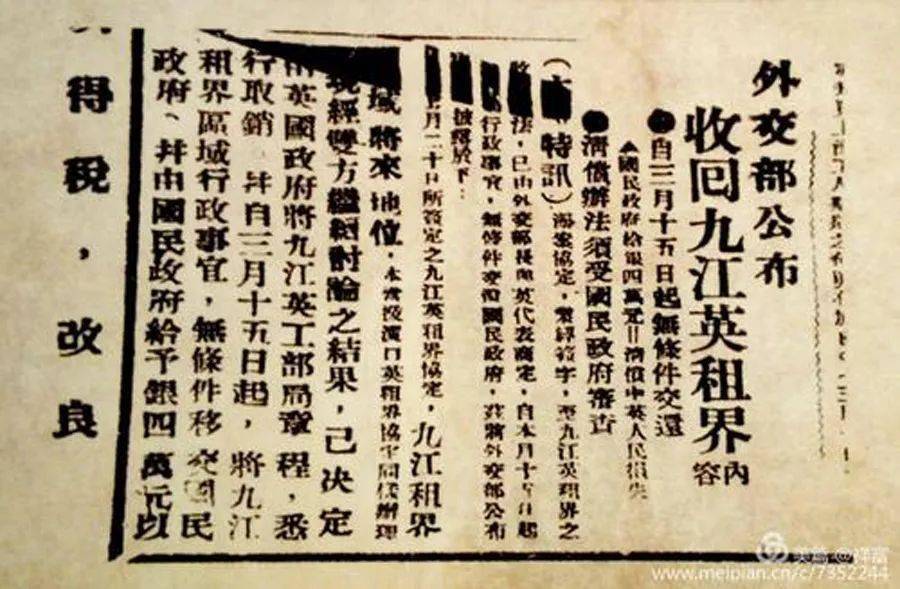 外交部公布
收回九江英租界內容
自三月十五日起無條件交還
▲國民政府給銀四萬元＝清償中英人民損失
清償辦法須受國民政府審查
特訊）潯案協定，業經簽字，至九江英租界之
法，已由外交部長與英代表商定，自本月十五日起
行政事宜，無條件交還國民政府，茲將外交部公布
披露於下：
月二十日所簽定之九江英租界協定，九江租界
域將來地位，本當按漢口英租界協定同樣辦理
現經雙方繼續討論之結果，已決定
由英國政府將九江英工部局章程，悉
行取銷，并自三月十五日起，將九江
租界區域行政事宜，無條件移交國民
政府、并由國民政府給予銀四萬元以
得稅，改良
美篇 @祥富
www.meipian.cn/c/7352244